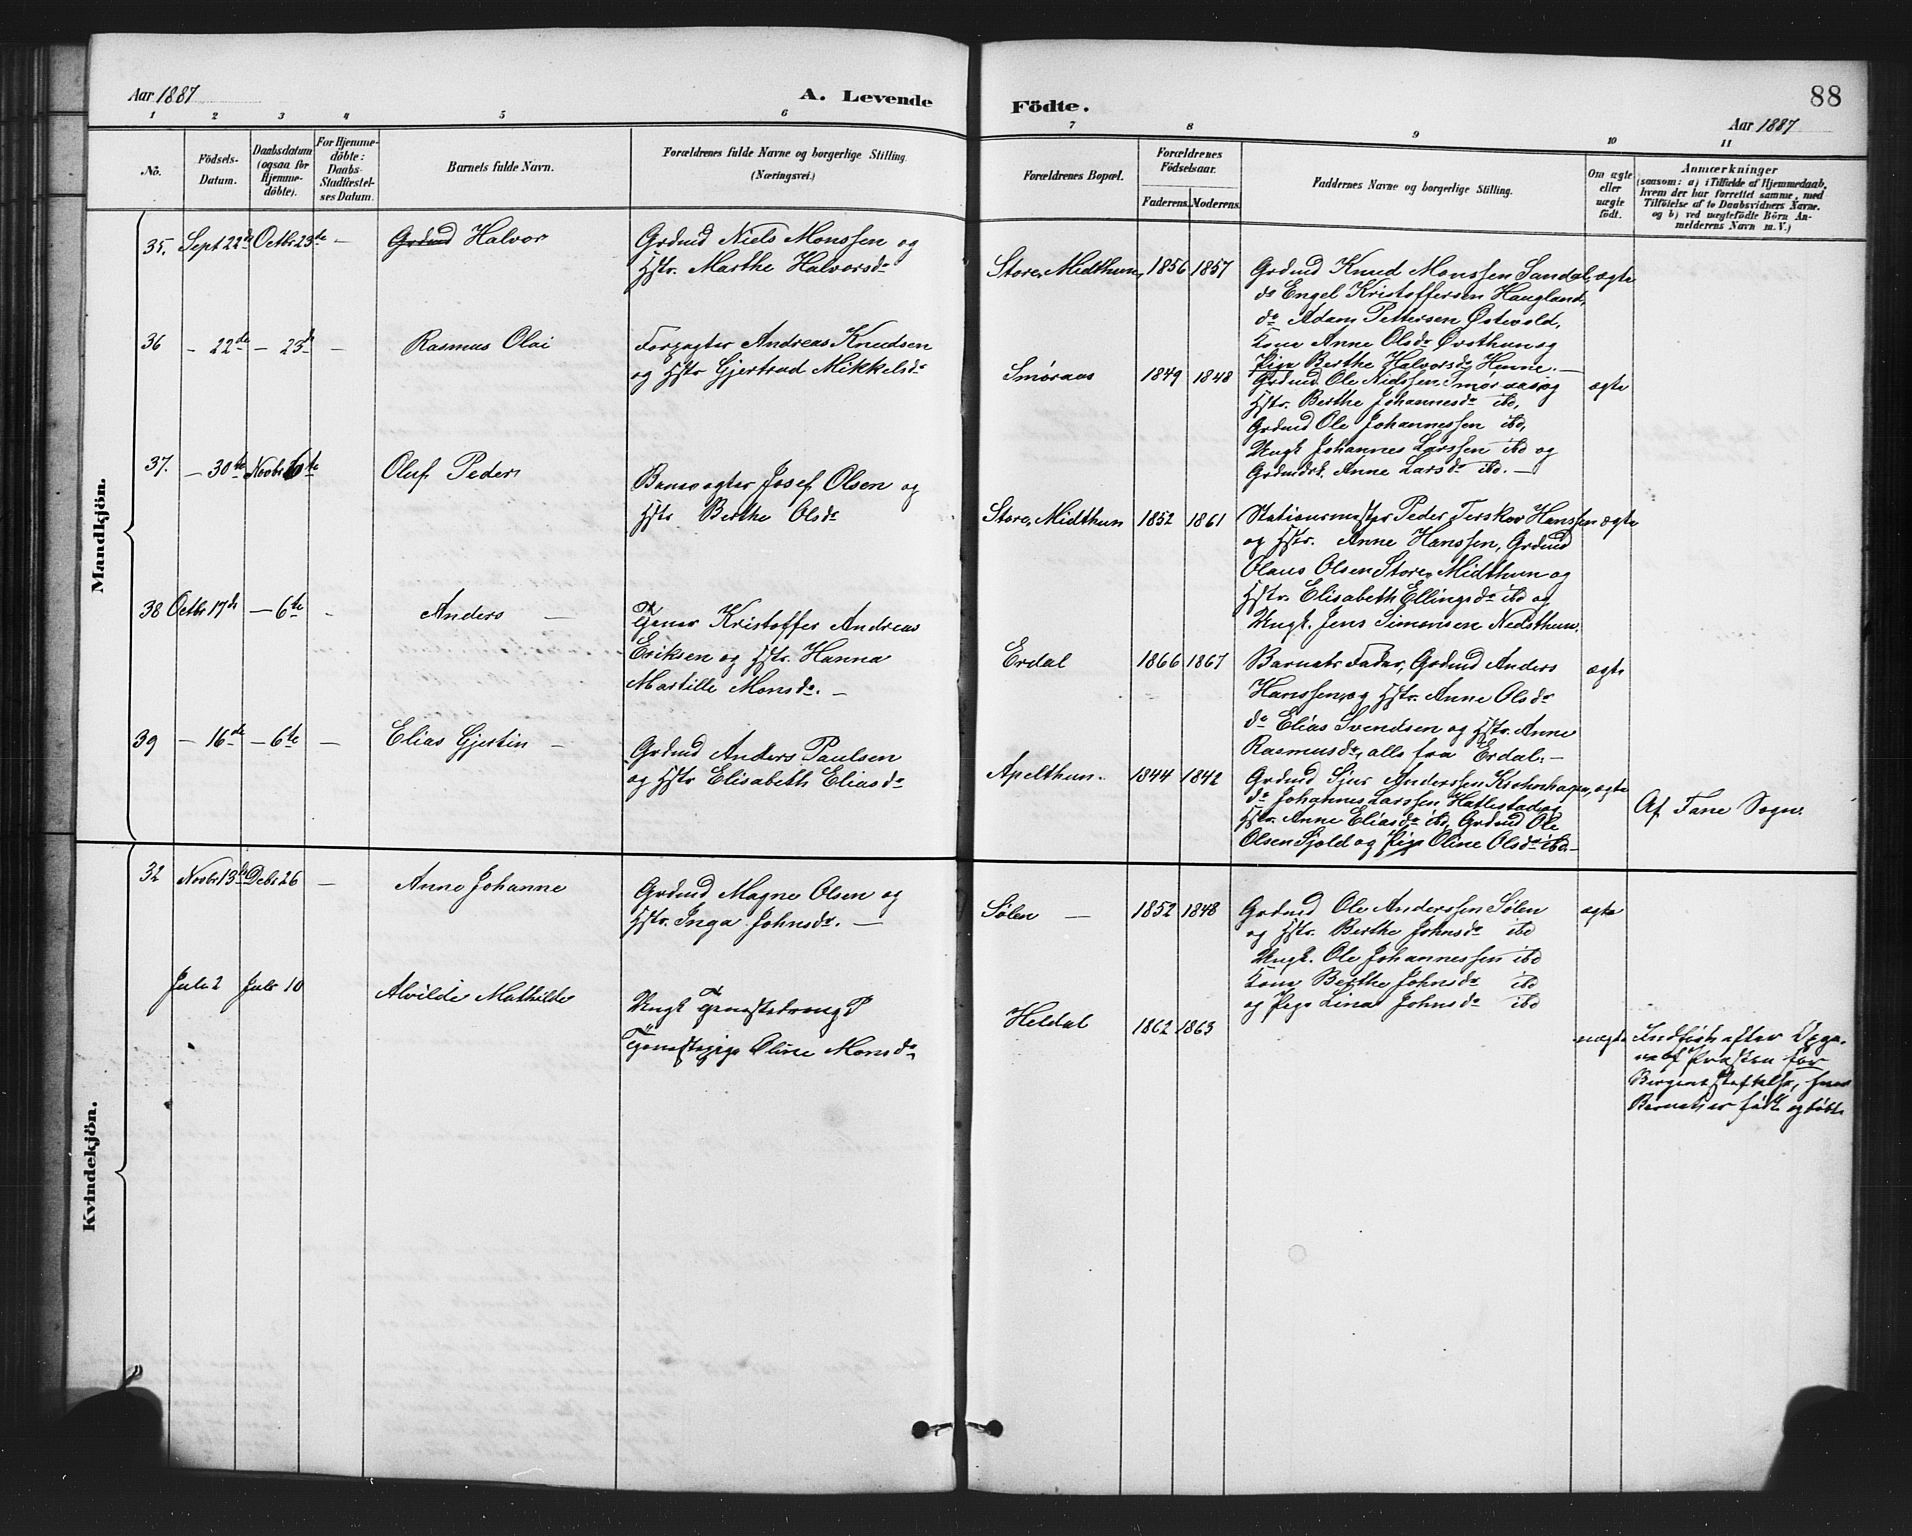 Aar 1887
A. Levende
Födte.
88
Aar 1887
1 2 3 4 5 6 7 8 9 10 11
No.
Födsels-Datum.
Daabsdatum (ogsaa for Hjemmedöbte).
For Hjemmedöbte: Daabs-Stadfæstelses Datum.
Barnets fulde Navn.
Forældrenes fulde Navne og borgerlige Stilling. (Næringsvei.)
Forældrenes Bopæl.
Forældrenes Födselsaar.
Faderens. Moderens.
Faddernes Navne og borgerlige Stilling.
Om ægte eller uægte födt.
Anmærkninger
(saasom: a) i Tilfælde af Hjemmedaab, hvem der har forrettet samme, med Tilföielse af to Daabsvidners Navne. og b) ved uægtefödte Börn Anmelderens Navn m. V.)
Mandkjön.
35. Sept 22de Octbr 23de — Grdmd Halvor
Grdmd Niels Monssen og
Hstr. Marthe Halvorsdr
Store Midthun, 1856 1857
Grdmd Knud Monssen Sandal, ægte
do Engel Kristoffersen Haugland,
do Adam Pettersen Østevold,
Kone Anne Olsdr Øvsthun og
Pige Berthe Halvorsdr Henne. —
36 — 22de — 23de — Rasmus Olai
Forpagter Andreas Knudsen
og Hstr Gjertrud Mikkelsdr
Smøraas 1849 1848
Grdmd Ole Nielssen Smøraas og ægte
Hstr. Berthe Johannesdr ibd,
Grdmd Ole Johannessen ibd,
Ungk. Johannes Larssen ibd og
Anne Larsdr ibd. —
37. — 30te Novbr 6te Oluf Peder
Banevogter Josef Olsen og
Hstr Berthe Olsdr
Store Midthun 1852 1861
Stationsmester Peder Terskov Hanssen ægte
og Hstr. Anne Hanssen, Grdmd
Olaus Olsen Store Midthun og
Hstr. Elisabeth Ellingsdr ibd og
Ungk. Jens Simonsen Nedsthun.
38 Octbr 17de — 6te - Anders —
Tjener Kristoffer Andreas
Eriksen og Hstr. Hanna
Martille Monsdr. —
Erdal 1866 1867
Barnets Fader, Grdmd Anders ægte
Hanssen og Hstr. Anne Olsdr
do Elias Svendsen og Hstr. Anne
Rasmusdr, alle fra Erdal. —
39 — 16de — 6te — Elias Gjertin —
Grdmd Anders Paulsen
og Hstr Elisabeth Eliasdr
Apelthun. 1844 1842
Grdmd Sjur Anderssen Krohnhagen, ægte
do Johannes Larssen Hatlestad og
Hstr. Anne Eliasdr ibd, Grdmd Ole
Olsen Sjøld og Pige Oline Olsdr ibd. —
Af Fane Sogn.
Kvindekjön.
32 Novbr 13de Debr 26 — Anne Johanne
Grdmd Magne Olsen og
Hstr. Inga Johnsdr. —
Sølen — 1852 1848
Grdmd Ole Anderssen Sølen ægte
og Hstr. Berthe Johnsdr ibd
Ungk. Ole Johannessen ibd
Kone Berthe Johnsdr ibd
og Pige Lina Johnsdr ibd
Juli 2 Juli 10 Alvilde Mathilde
Ungk Tjenestedreng P
Tjenestepige Oline Monsdr
Heldal 1862 1863 uægte
Indført efter Opga-
ve af Præsten for
Bergens Stiftelse, hvor
Barnet er født og døbt